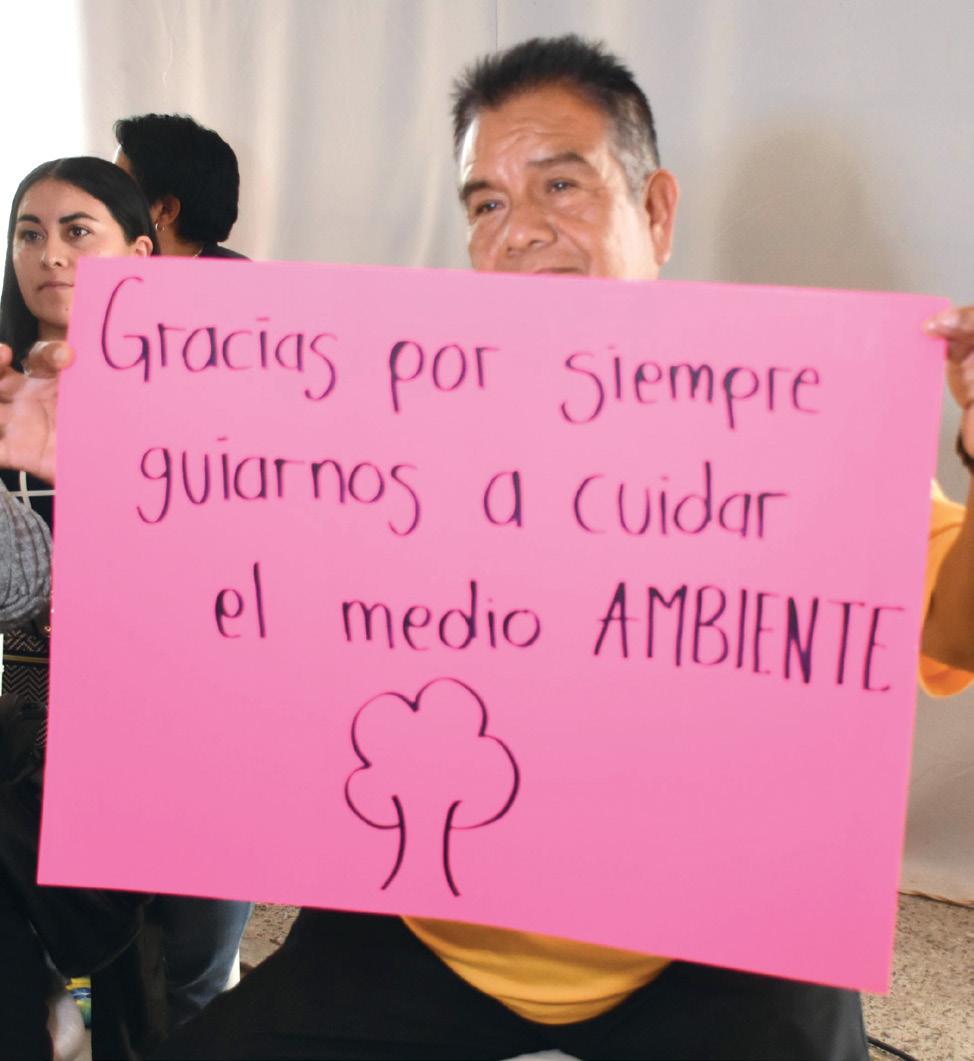 Gracias por siempre
guiarnos a cuidar
el medio AMBIENTE